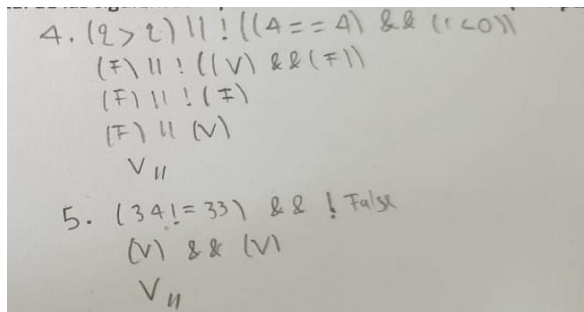 4. (2 > 2) || ! ((4 == 4) && (1 < 0))
(F) || ! ((V) && (F))
(F) || ! (F)
(F) || (V)
V //
5. (34 != 33) && ! False
(V) && (V)
V //